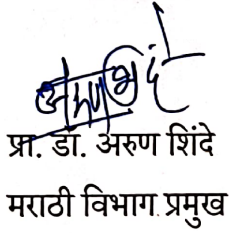 प्रा. डॉ. अरुण शिंदे
मराठी विभाग प्रमुख